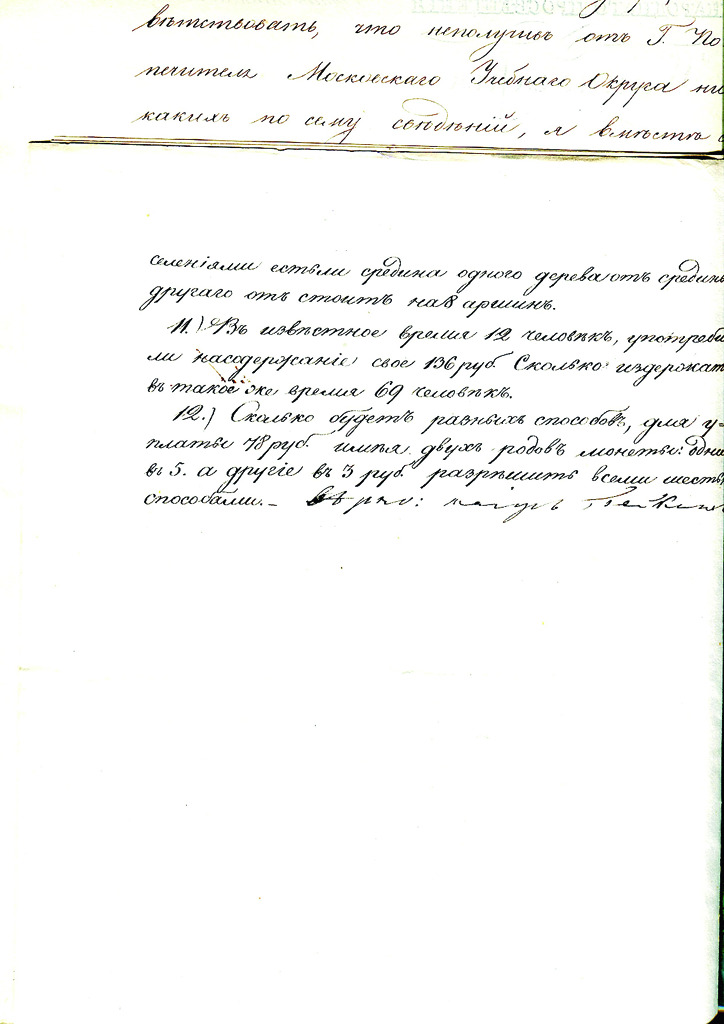 вѣтствовать, что неполучивъ отъ Г. По
печителя Московскаго Учебнаго Округа ни
какихъ по сему свѣдѣній, я вмѣстѣ с
селеніями естьли средина одного дерева отъ средины
другаго отъ стоитъ на 8 аршинъ.
11.) Въ извѣстное время 12 человѣкъ, употреби
ли насодержаніе свое 136 руб. Сколько издержат
въ такое же время 69 человѣкъ.
12.) Сколько будетъ разныхъ способовъ, для у=
платы 78 руб. имѣя двухъ родовъ монеты: одни
въ 5. а другіе въ 3 руб. разрѣшить всеми шесть
способами.–